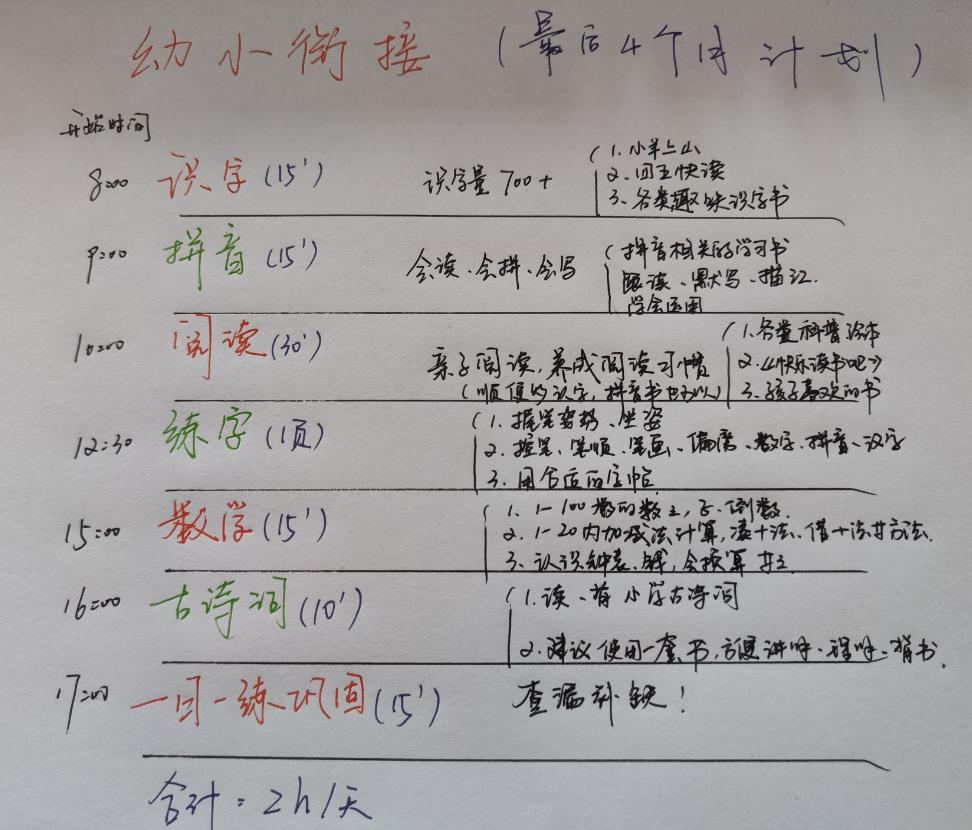 幼小衔接(最后4个月计划)
开始时间
8:00 识字(15') 识字量700+
1. 小羊上山
2. 四五快读
3. 各类趣味识字书
9:00 拼音(15') 会读、会拼、会写
拼音相关的学习书
跟读、默写、描红.
学会运用
10:00 阅读(30') 亲子阅读,养成阅读习惯
(顺便的识字,拼音书也可以)
1. 各类科普绘本
2. 《快乐读书吧》
3. 孩子喜欢的书
12:30 练字(1页)
1. 握笔姿势、坐姿
2. 控笔、笔顺、笔画、偏旁、数字、拼音、汉字
3. 用合适的字帖
15:00 数学(15')
1. 1-100数的数立,正、倒数.
2. 1-20内加减法计算,凑十法、借十法等方法.
3. 认识钟表、钱,会换算等
16:00 古诗词(10')
1. 读、背小学古诗词
2. 建议使用一套书,方便讲解、理解、背书.
17:00 一日一练巩固(15') 查漏补缺!
合计:2h/天